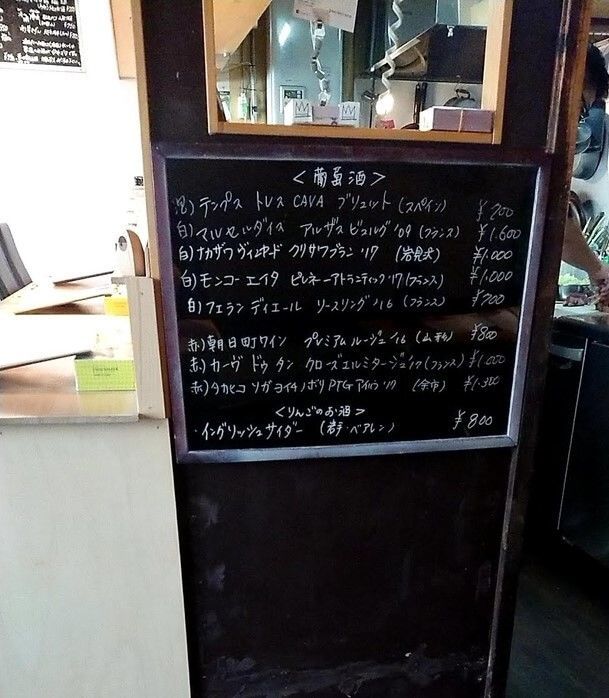 <葡萄酒>
泡) テンプス トレス CAVA ブリュット (スペイン) ¥700
白) マルセルダイス アルザス ビュルグ '09 (フランス) ¥1.600
白) ナカザワヴィンヤード クリサワブラン '17 (岩見沢) ¥1.000
白) モンコー エイタ ピレネーアトランティック '17 (フランス) ¥1.000
白) フェラン ディエール リースリング '16 (フランス) ¥700
赤) 朝日町ワイン プレミアムルージュ '16 (山形) ¥800
赤) カーヴ ドゥ タン クローズエルミタージュ '17 (フランス) ¥1.000
赤) タカヒコ ソガ ヨイチノボリ PTG '17 (余市) ¥1.300
<りんごのお酒>
・イングリッシュサイダー (岩手・ベアレン) ¥800